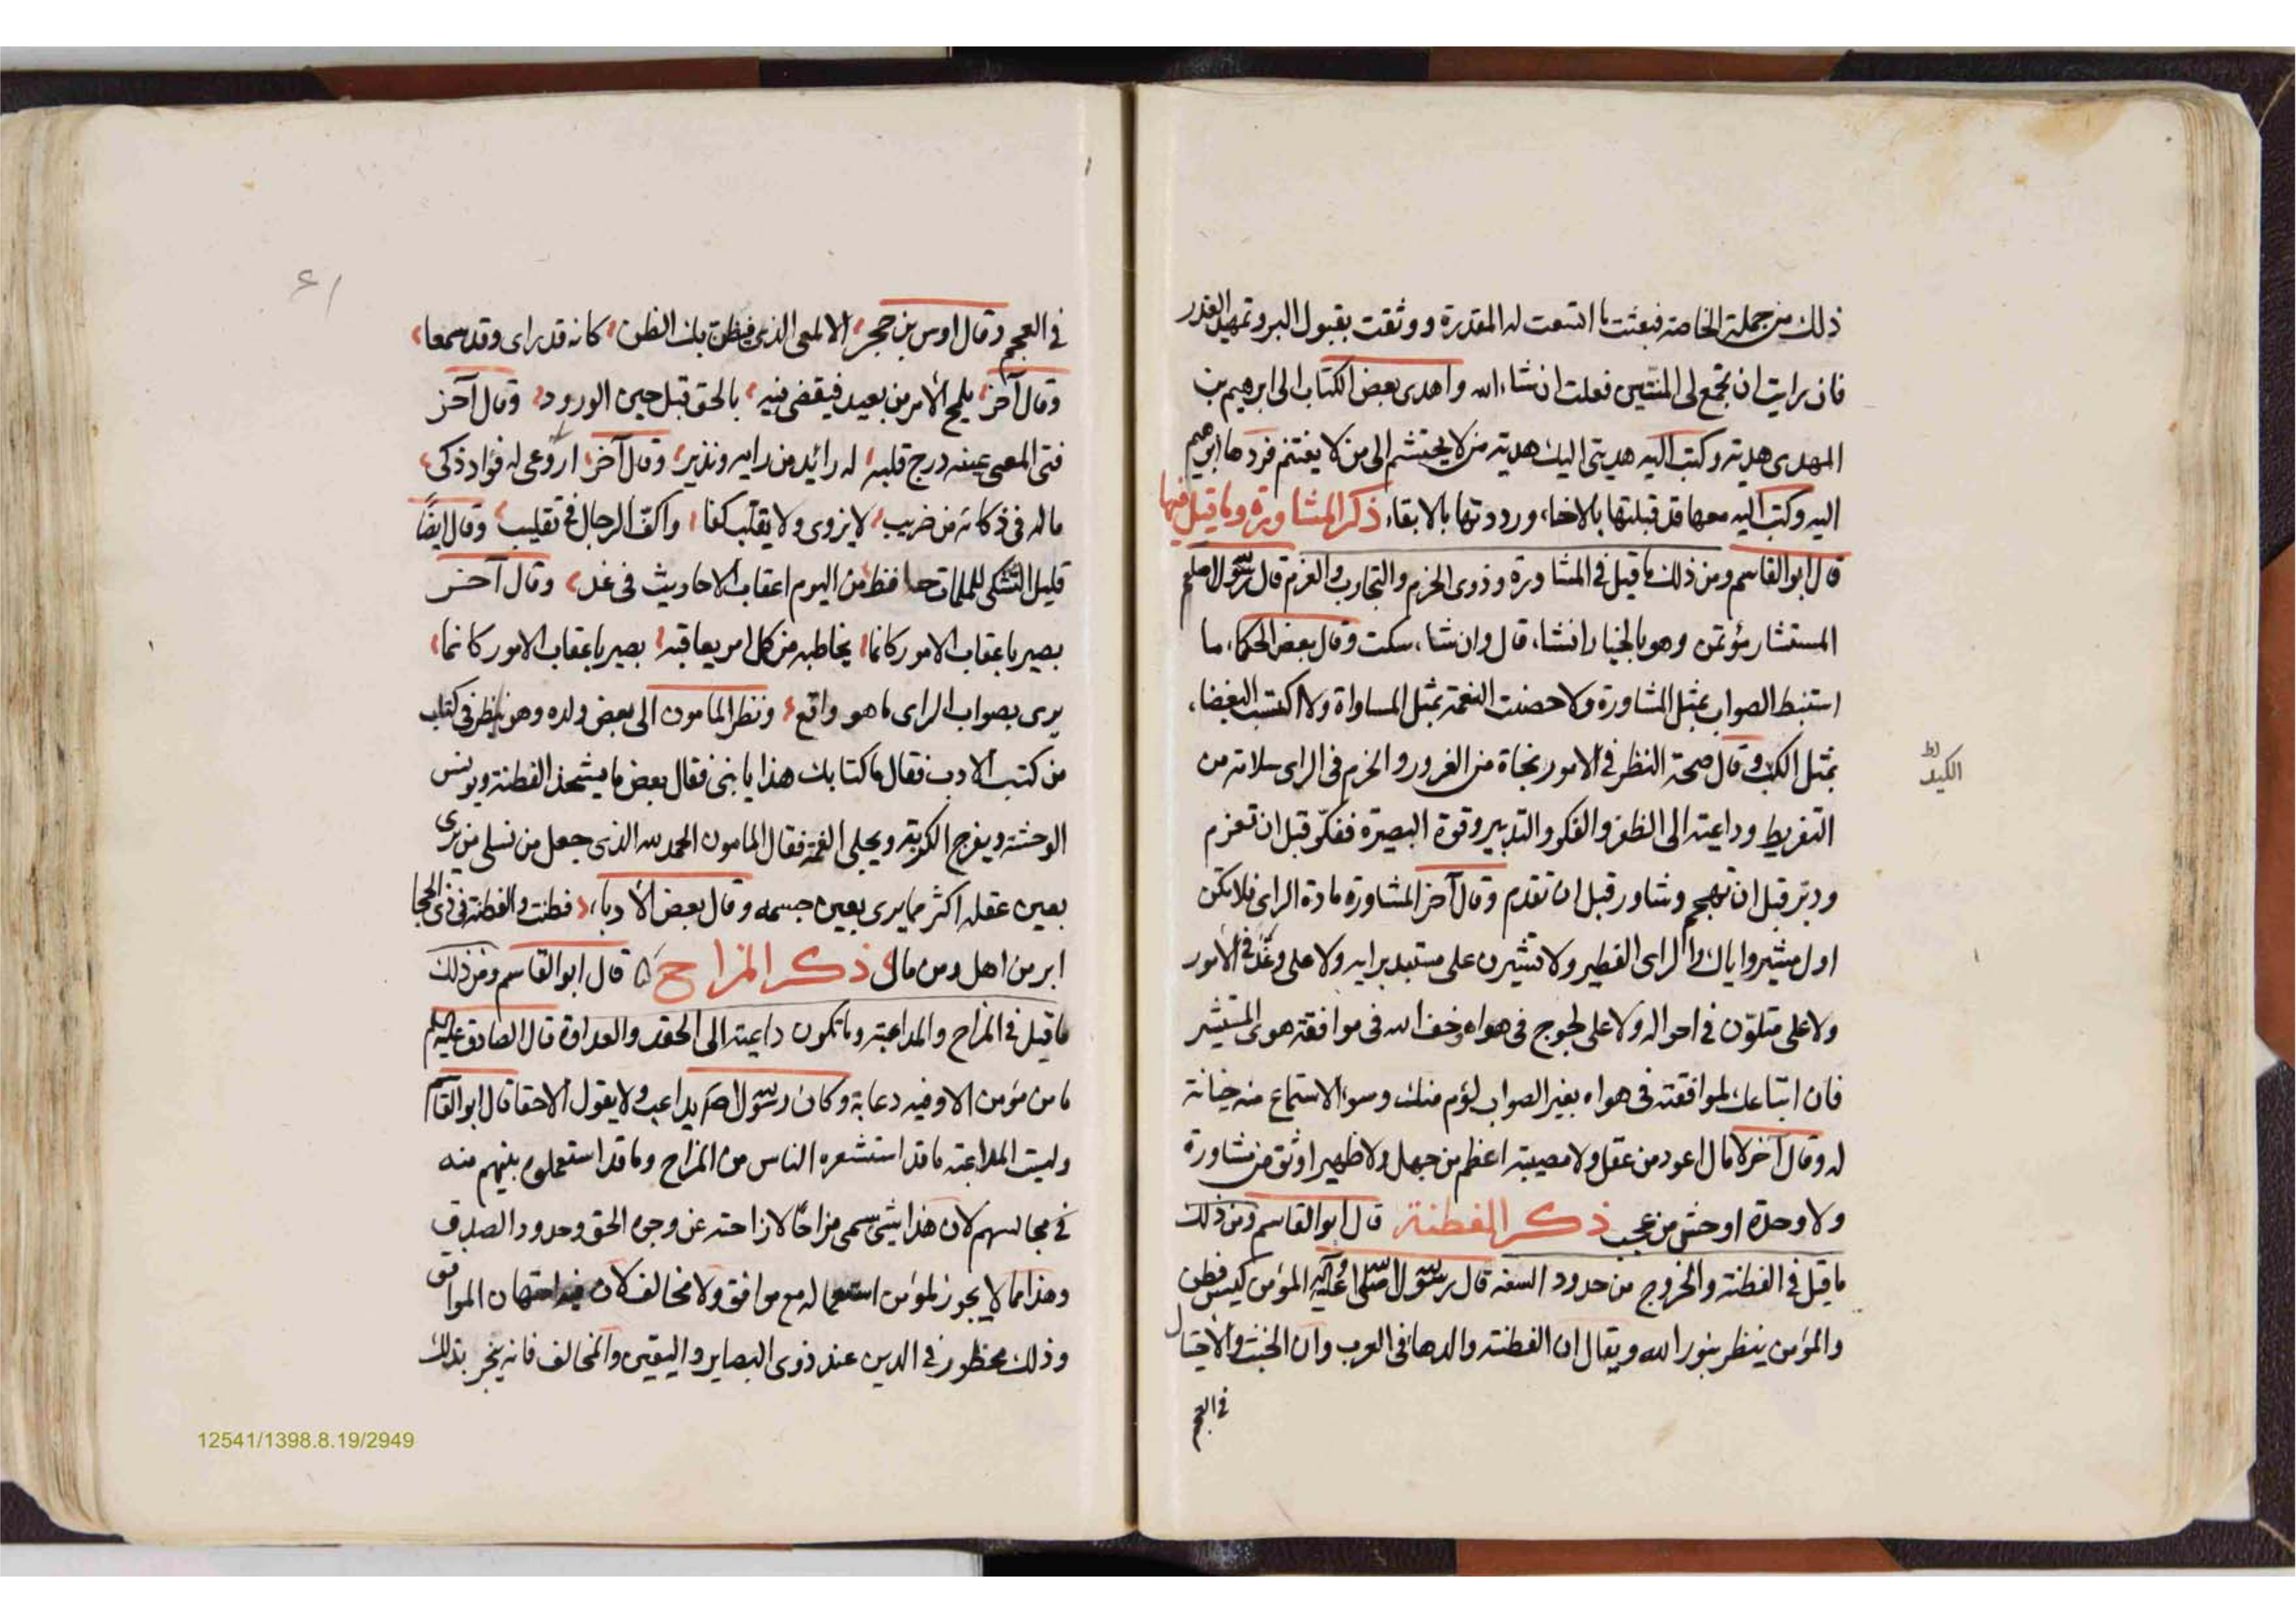 ذلك من جملة الخاصة فبعثت ما اتسعت له المقدرة ووثقت بقبول البر وتمهيل العذر
فان رايت ان تجمع لى المنتين فعلت ان شاء الله واهدى بعض الكتاب الى ابرهيم بن
المهدى هدية وكتب اليه هديتى اليك هدية من لا يحتشم الى من لا يغتنم فردها ابرهيم
اليه وكتب اليه معها قد قبلتها بالاخاء ورددتها بالابقاء ذكر المشاورة وما قيل فيها
قال ابو القاسم ومن ذلك ما قيل فى المشاورة وذوى الحزم والتجارب والعزم قال رسول الله صلعم
المستشار مؤتمن وهو بالخيار ان شاء قال وان شاء سكت وقال بعض الحكماء ما
استنبط الصواب بمثل المشاورة ولا حصنت النعمة بمثل المساواة ولا اكتسبت البغضاء
بمثل الكبر وقال صحة النظر فى الامور نجاة من الغرور والحزم فى الراى سلامة من
الكيد
التفريط وداعية الى الظفر والفكر والتدبير وقوة البصيرة ففكّر قبل ان تعزم
ودبّر قبل ان تهجم وشاور قبل ان تقدم وقال آخر المشاورة مادة الراى فلا تكن
اول مشير واياك والراى الفطير ولا تشيرن على مستبد برايه ولا على وغد فى الامور
ولا على متلوّن فى احواله ولا على لجوج فى هواه وخف الله فى موافقة هوى المستشير
فان اتباعك لموافقته فى هواه بغير الصواب لؤم منك وسوء الاستماع منه خيانة
له وقال آخر لا مال اعود من عقل ولا مصيبة اعظم من جهل ولا ظهير اوثق من مشاورة
ولا وحدة اوحش من عجب ذكر الفطنة قال ابو القاسم ومن ذلك
ما قيل فى الفطنة والخروج من حدود السفه قال رسول الله صلى الله عليه وآله المؤمن كيس فطن
والمؤمن ينظر بنور الله ويقال ان الفطنة والدها فى العرب وان الخبث والاحتيال
فى العجم
٤١
فى العجم وقال اوس بن حجر الالمعى الذى يظن بك الظن كانه قد راى وقد سمعا
وقال آخر يلمح الامر من بعيد فيقضى فيه بالحق قبل حين الورود وقال آخر
فتى المعى عينه درج قلبه له رائد من رايه ونذير وقال آخر اروعى له فؤاد ذكى
ماله فى ذكائه من ضريب لا يروى ولا يقلّب كفا واكفّ الرجال فى تقليب وقال ايضًا
قليل التشكى للملمات حافظ من اليوم اعقاب الاحاديث فى غد وقال آخر
بصير باعقاب الامور كانما يخاطبه من كل امر يعاقبه بصير باعقاب الامور كانما
يرى بصواب الراى ما هو واقع ونظر المامون الى بعض ولده وهو ينظر فى كتاب
من كتب الادب فقال ما كتابك هذا يا بنى فقال بعض ما يشحذ الفطنة ويونس
الوحشة ويفرج الكربة ويجلى الغمة فقال المامون الحمد لله الذى جعل من نسلى من يرى
بعين عقله اكثر مما يرى بعين جسمه وقال بعض الادباء فطنت والفطنة فى ذى الحجا
ابر من اهل ومن مال ذكر المزاح قال ابو القاسم ومن ذلك
ما قيل فى المزاح والمداعبة وما تكون داعية الى الحقد والعداوة قال الصادق عليه السلم
ما من مؤمن الا وفيه دعابة وكان رسول الله صم يداعب ولا يقول الا حقا قال ابو القاسم
وليست المداعبة ما قد استشعره الناس من المزاح وما قد استعملوه بينهم منه
فى مجالسهم لان هذا شىء سمى مزاحًا لازاحته عن وجوه الحق وحدود الصدق
وهذا مما لا يجوز لمؤمن استعماله مع موافق ولا مخالف لان فيه امتهان الموافق
وذلك محظور فى الدين عند ذوى البصاير واليقين والمخالف فانه ينجر بذلك
12541/1398.8.19/2949